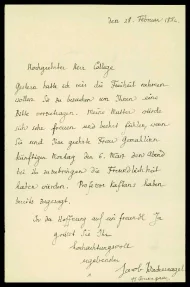 den 28. Februar 18
Hochgeehrter Herr College
Gestern hätte ich mir die Freiheit nehmen
wollen Sie zu besuchen um Ihnen eine
Bitte vorzutragen. Meine Mutter würde
sich sehr freuen und geehrt fühlen, wenn
Sie und Ihre geehrte Frau Gemahlin
künftigen Montag den 6. März den Abend
bei ihr zuzubringen die Freundlichkeit
haben würden. Professor Kaftans haben
bereits zugesagt.
In der Hoffnung auf ein freundl. Ja
grüsst Sie Ihr
hochachtungsvoll
ergebender
Jacob Wackernagel